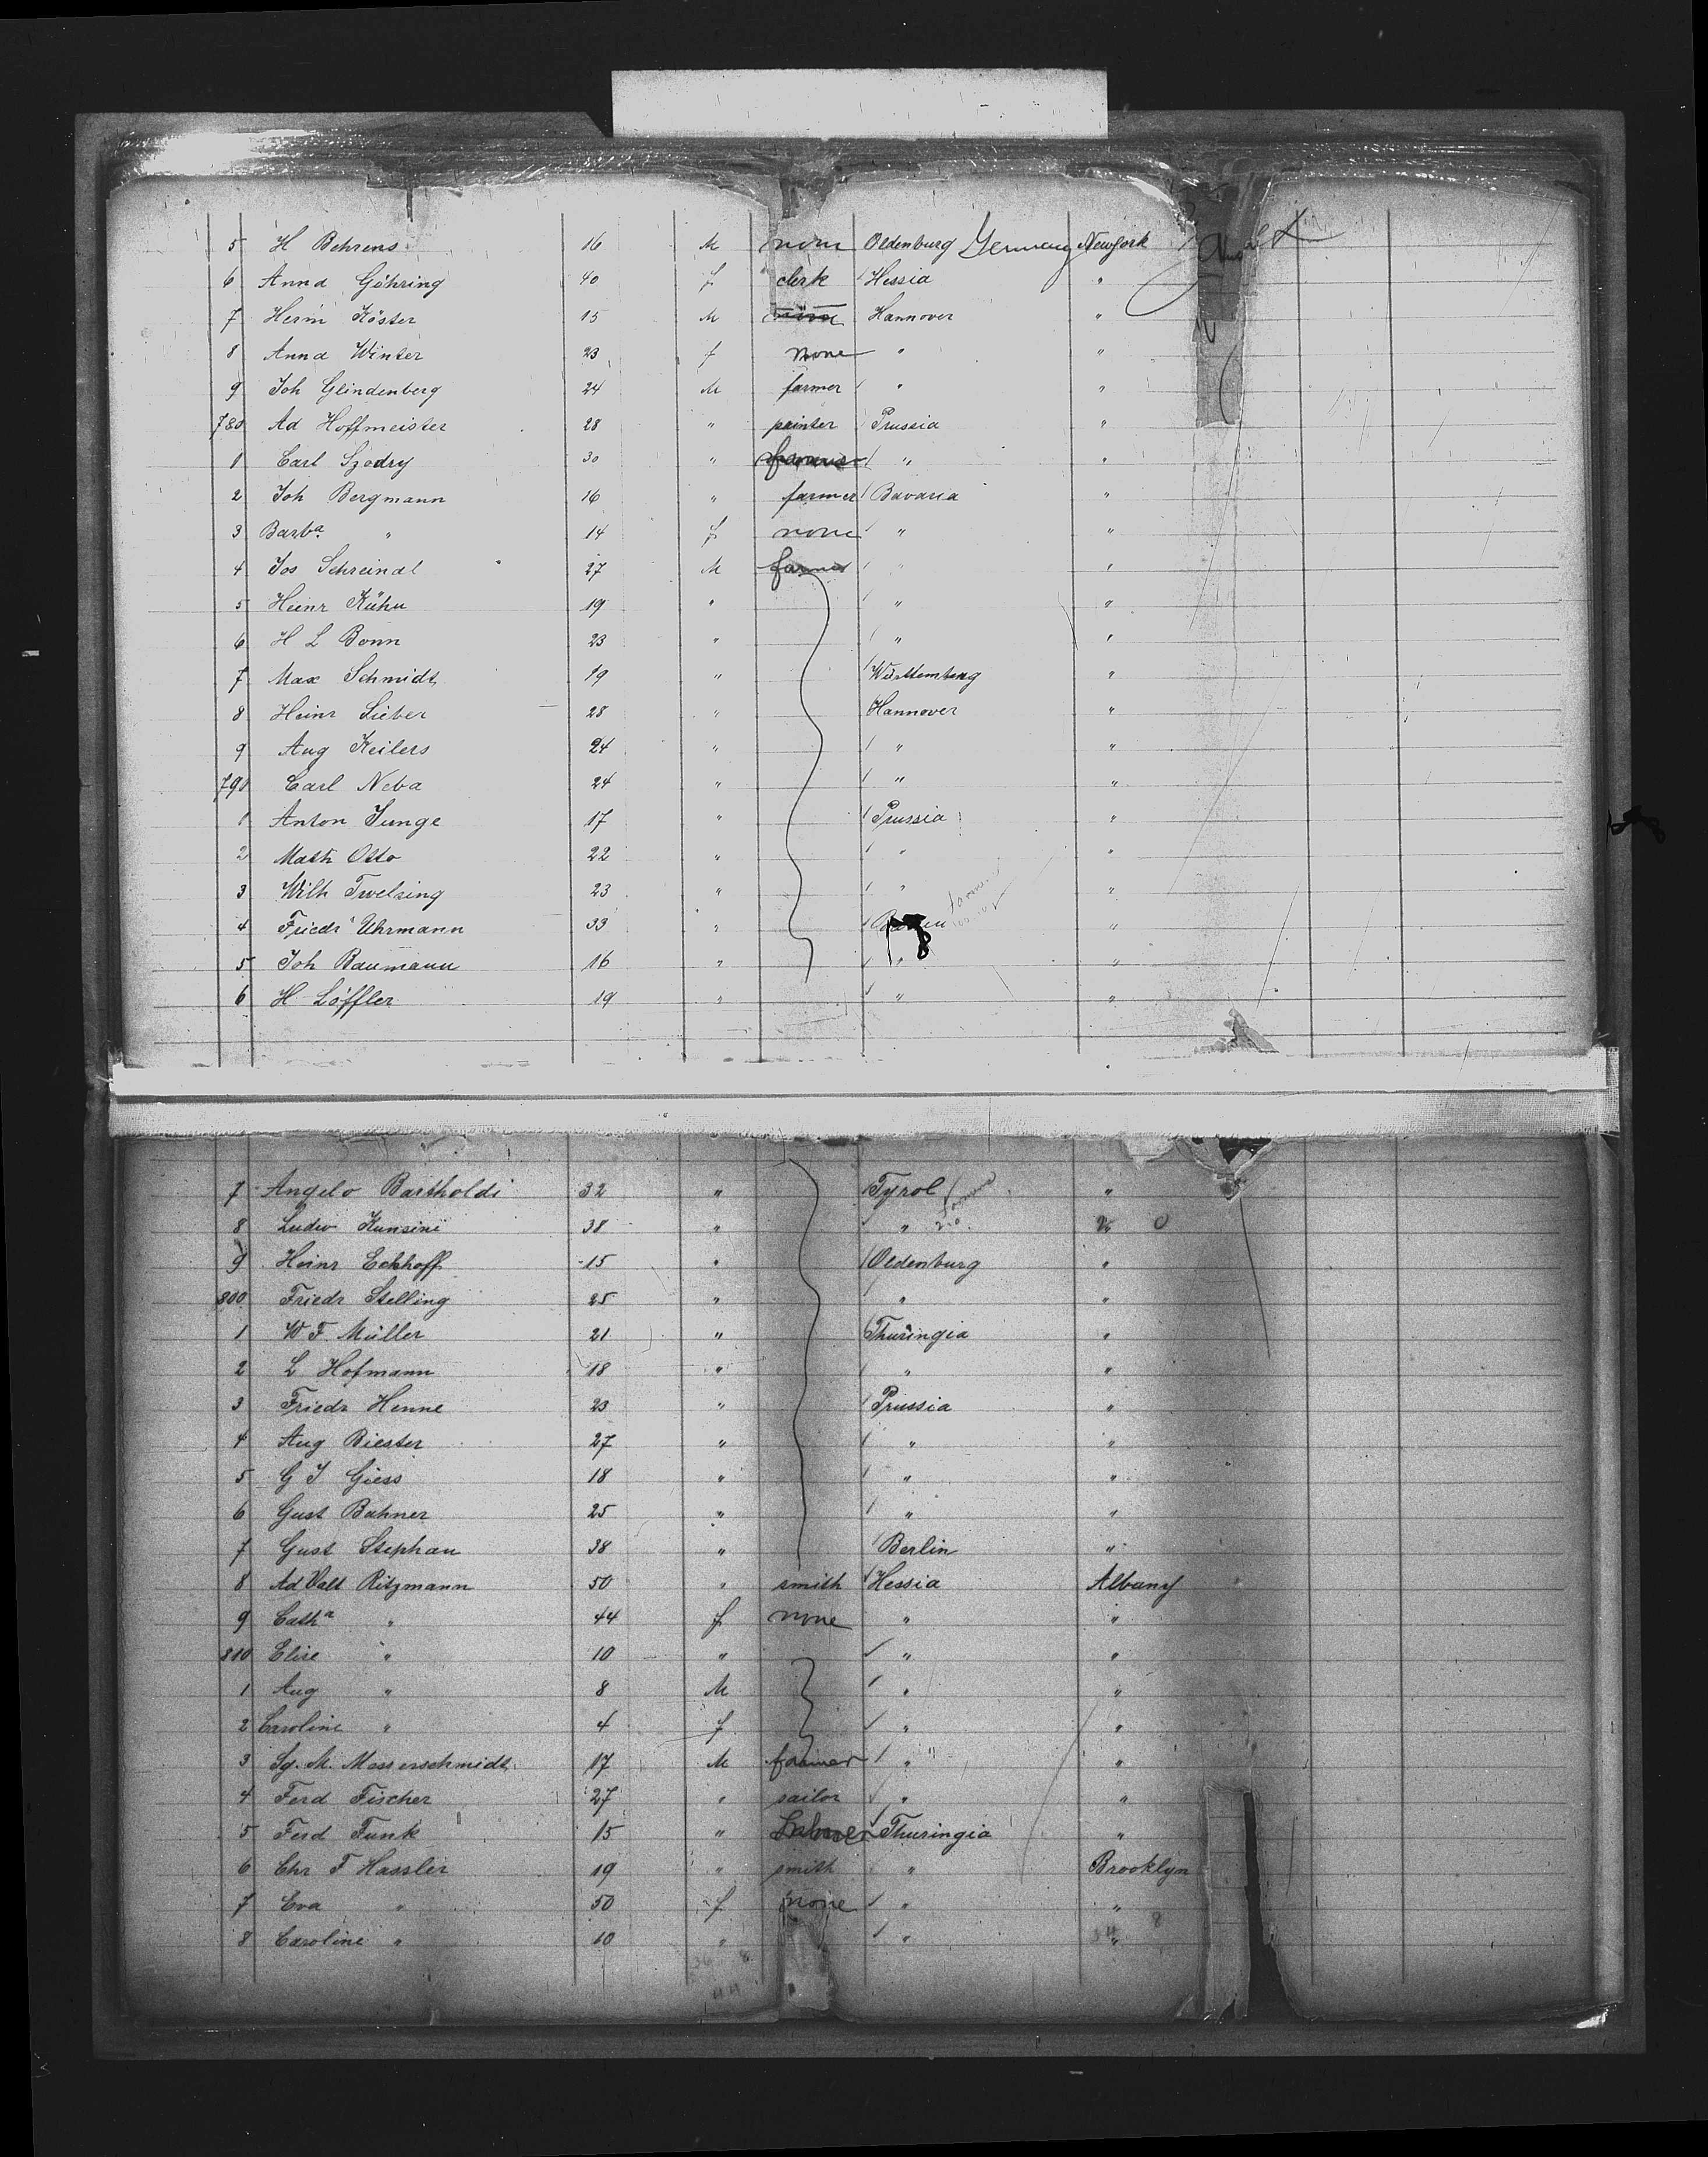 5 H Behrens 16 M none Oldenburg Germany New York
6 Anna Göhring 40 f clerk Hessia "
7 Herm Köster 15 M Hannover "
8 Anna Winter 23 f none " "
9 Joh Glindenberg 24 M farmer " "
780 Ad Hoffmeister 28 " painter Prussia "
1 Carl Szodry 30 " farmer " "
2 Joh Bergmann 16 " farmer Bavaria "
3 Barba " 14 f none " "
4 Jos Schreindl 27 M farmer " "
5 Heinr Kühn 19 " " "
6 H L Bonn 23 " " "
7 Max Schmidt 19 " Württemberg "
8 Heinr Lieber 28 " Hannover "
9 Aug Keilers 24 " " "
790 Carl Neba 24 " " "
1 Anton Junge 17 " Prussia "
2 Math Otto 22 " " "
3 Wilh Twelsing 23 " " "
4 Friedr Uhrmann 33 " "
5 Joh Baumann 16 " " "
6 H Löffler 19 " " "
7 Angelo Bartholdi 32 " Tyrol "
8 Ludw Kunsini 38 " "
9 Heinr Eckhoff 15 " Oldenburg "
800 Friedr Stelling 25 " " "
1 W F Müller 21 " Thuringia "
2 L Hofmann 18 " " "
3 Friedr Henne 23 " Prussia "
4 Aug Biester 27 " " "
5 G J Giess 18 " " "
6 Gust Bahner 25 " " "
7 Gust Stephan 38 " Berlin "
8 Ad Valt Ritzmann 50 " smith Hessia Albany
9 Catha " 44 f none " "
810 Elise " 10 " " "
1 Aug " 8 M " "
2 Caroline " 4 f " "
3 Sg. M. Messerschmidt 17 M farmer " "
4 Ferd Fischer 27 " sailor " "
5 Ferd Funk 15 " Labourer Thuringia "
6 Chr F Hassler 19 " smith " Brooklyn
7 Eva " 50 f none " "
8 Caroline " 10 " " "